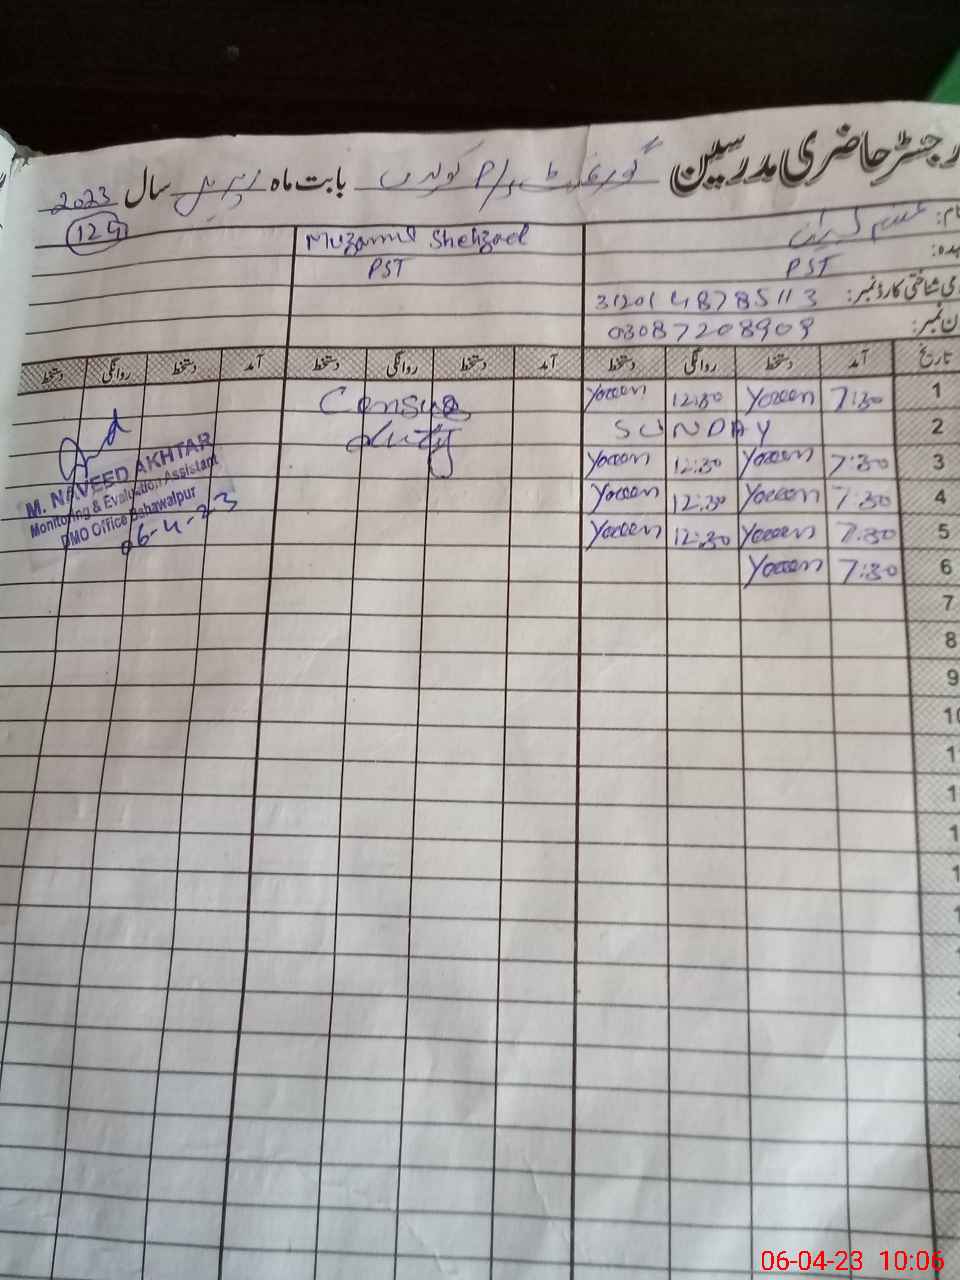 رجسٹر حاضری مدرسین گورنمنٹ P/S بابت ماہ اپریل سال 2023
124
نام:
Muzamil Shehzad
عہدہ: PST
PST
قومی شناختی کارڈ نمبر: 3120148785113
فون نمبر: 03087208909
تاریخ آمد دستخط روانگی دستخط آمد دستخط روانگی دستخط آمد دستخط روانگی دستخط
1 7:30 Yaseen 12:30 Yaseen
Census
2 SUNDAY
duty
3 7:30 Yaseen 12:30 Yaseen
4 7:30 Yaseen 12:30 Yaseen
5 7:30 Yaseen 12:30 Yaseen
6 7:30 Yaseen
7
8
9
10
M. NAVEED AKHTAR
Monitoring & Evaluation Assistant
DMO Office Bahawalpur
06-4-23
06-04-23 10:06